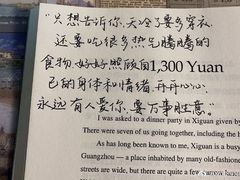 “只想告诉你，天冷了要多穿衣，
还要吃很多热气腾腾的
食物，好好照顾自
1,300 Yuan
己的身体和情绪，开开心心。
永远有人爱你，要万事胜意。”
I was asked to a dinner party in Xiguan given by
There were seven of us going together, including the
As has long been known to me, Xiguan is a busy
Guangzhou — a place inhabited by many old-fashion
streets are wide, but there are quite a few